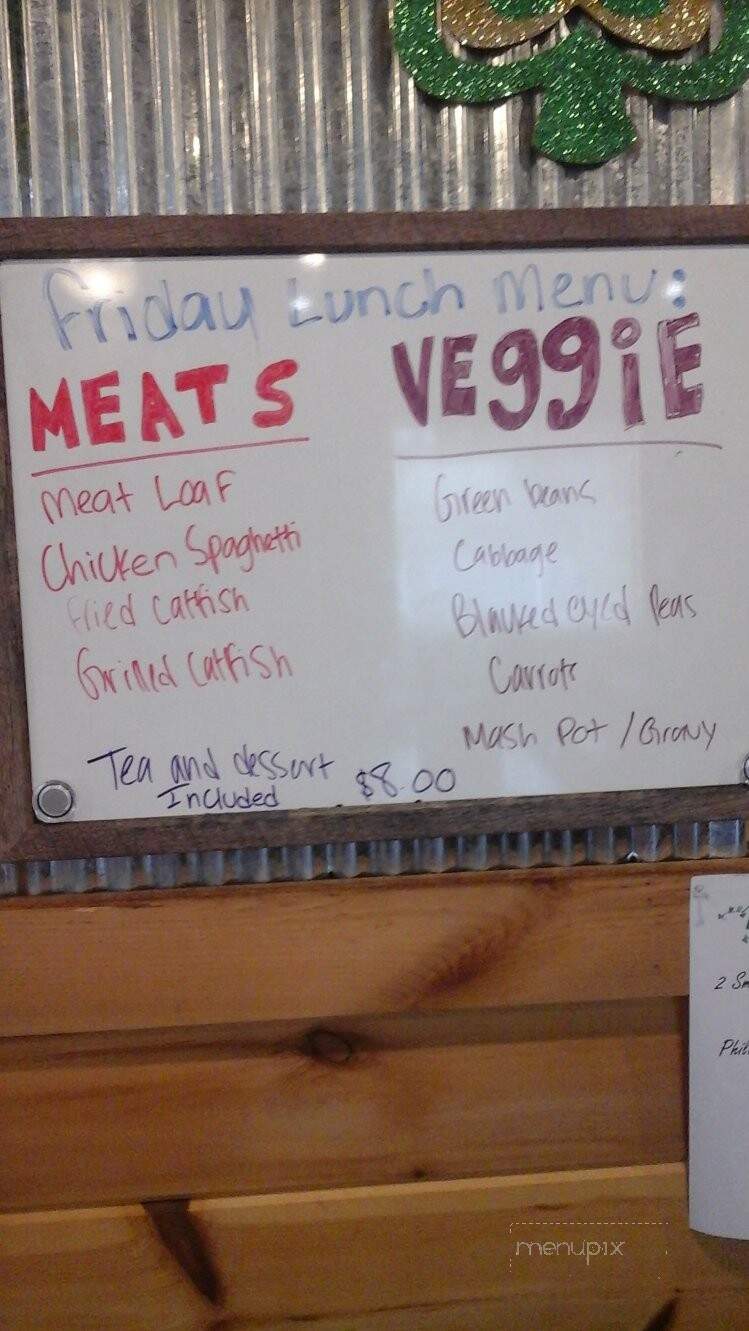 Friday Lunch Menu:
MEATS
Meat Loaf
Chicken Spaghetti
Fried Catfish
Grilled Catfish
VEggiE
Green beans
Cabbage
Peas
Carrots
Mash Pot / Gravy
Tea and dessert
Included
$8.00
2
menupix